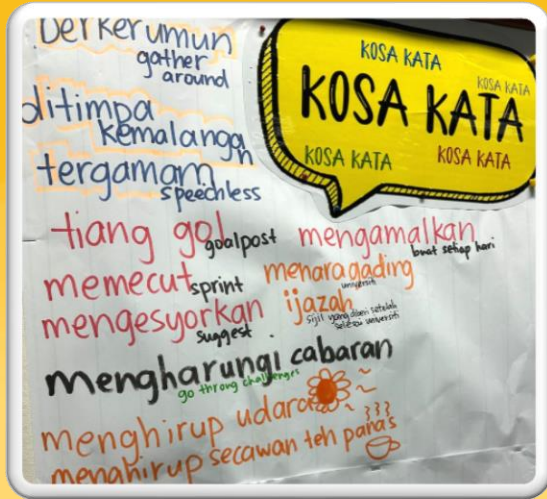 berkerumun
gather
around
ditimpa
kemalangan
tergamam
speechless
KOSA KATA
KOSA KATA
KOSA KATA
KOSA KATA
KOSA KATA
tiang gol
goalpost
mengamalkan
buat setiap hari
memecut
sprint
menara gading
universiti
mengesyorkan
suggest
ijazah
sijil yang diberi setelah
selesai universiti
mengharungi cabaran
go throng challenges
menghirup udara
menghirup secawan teh panas